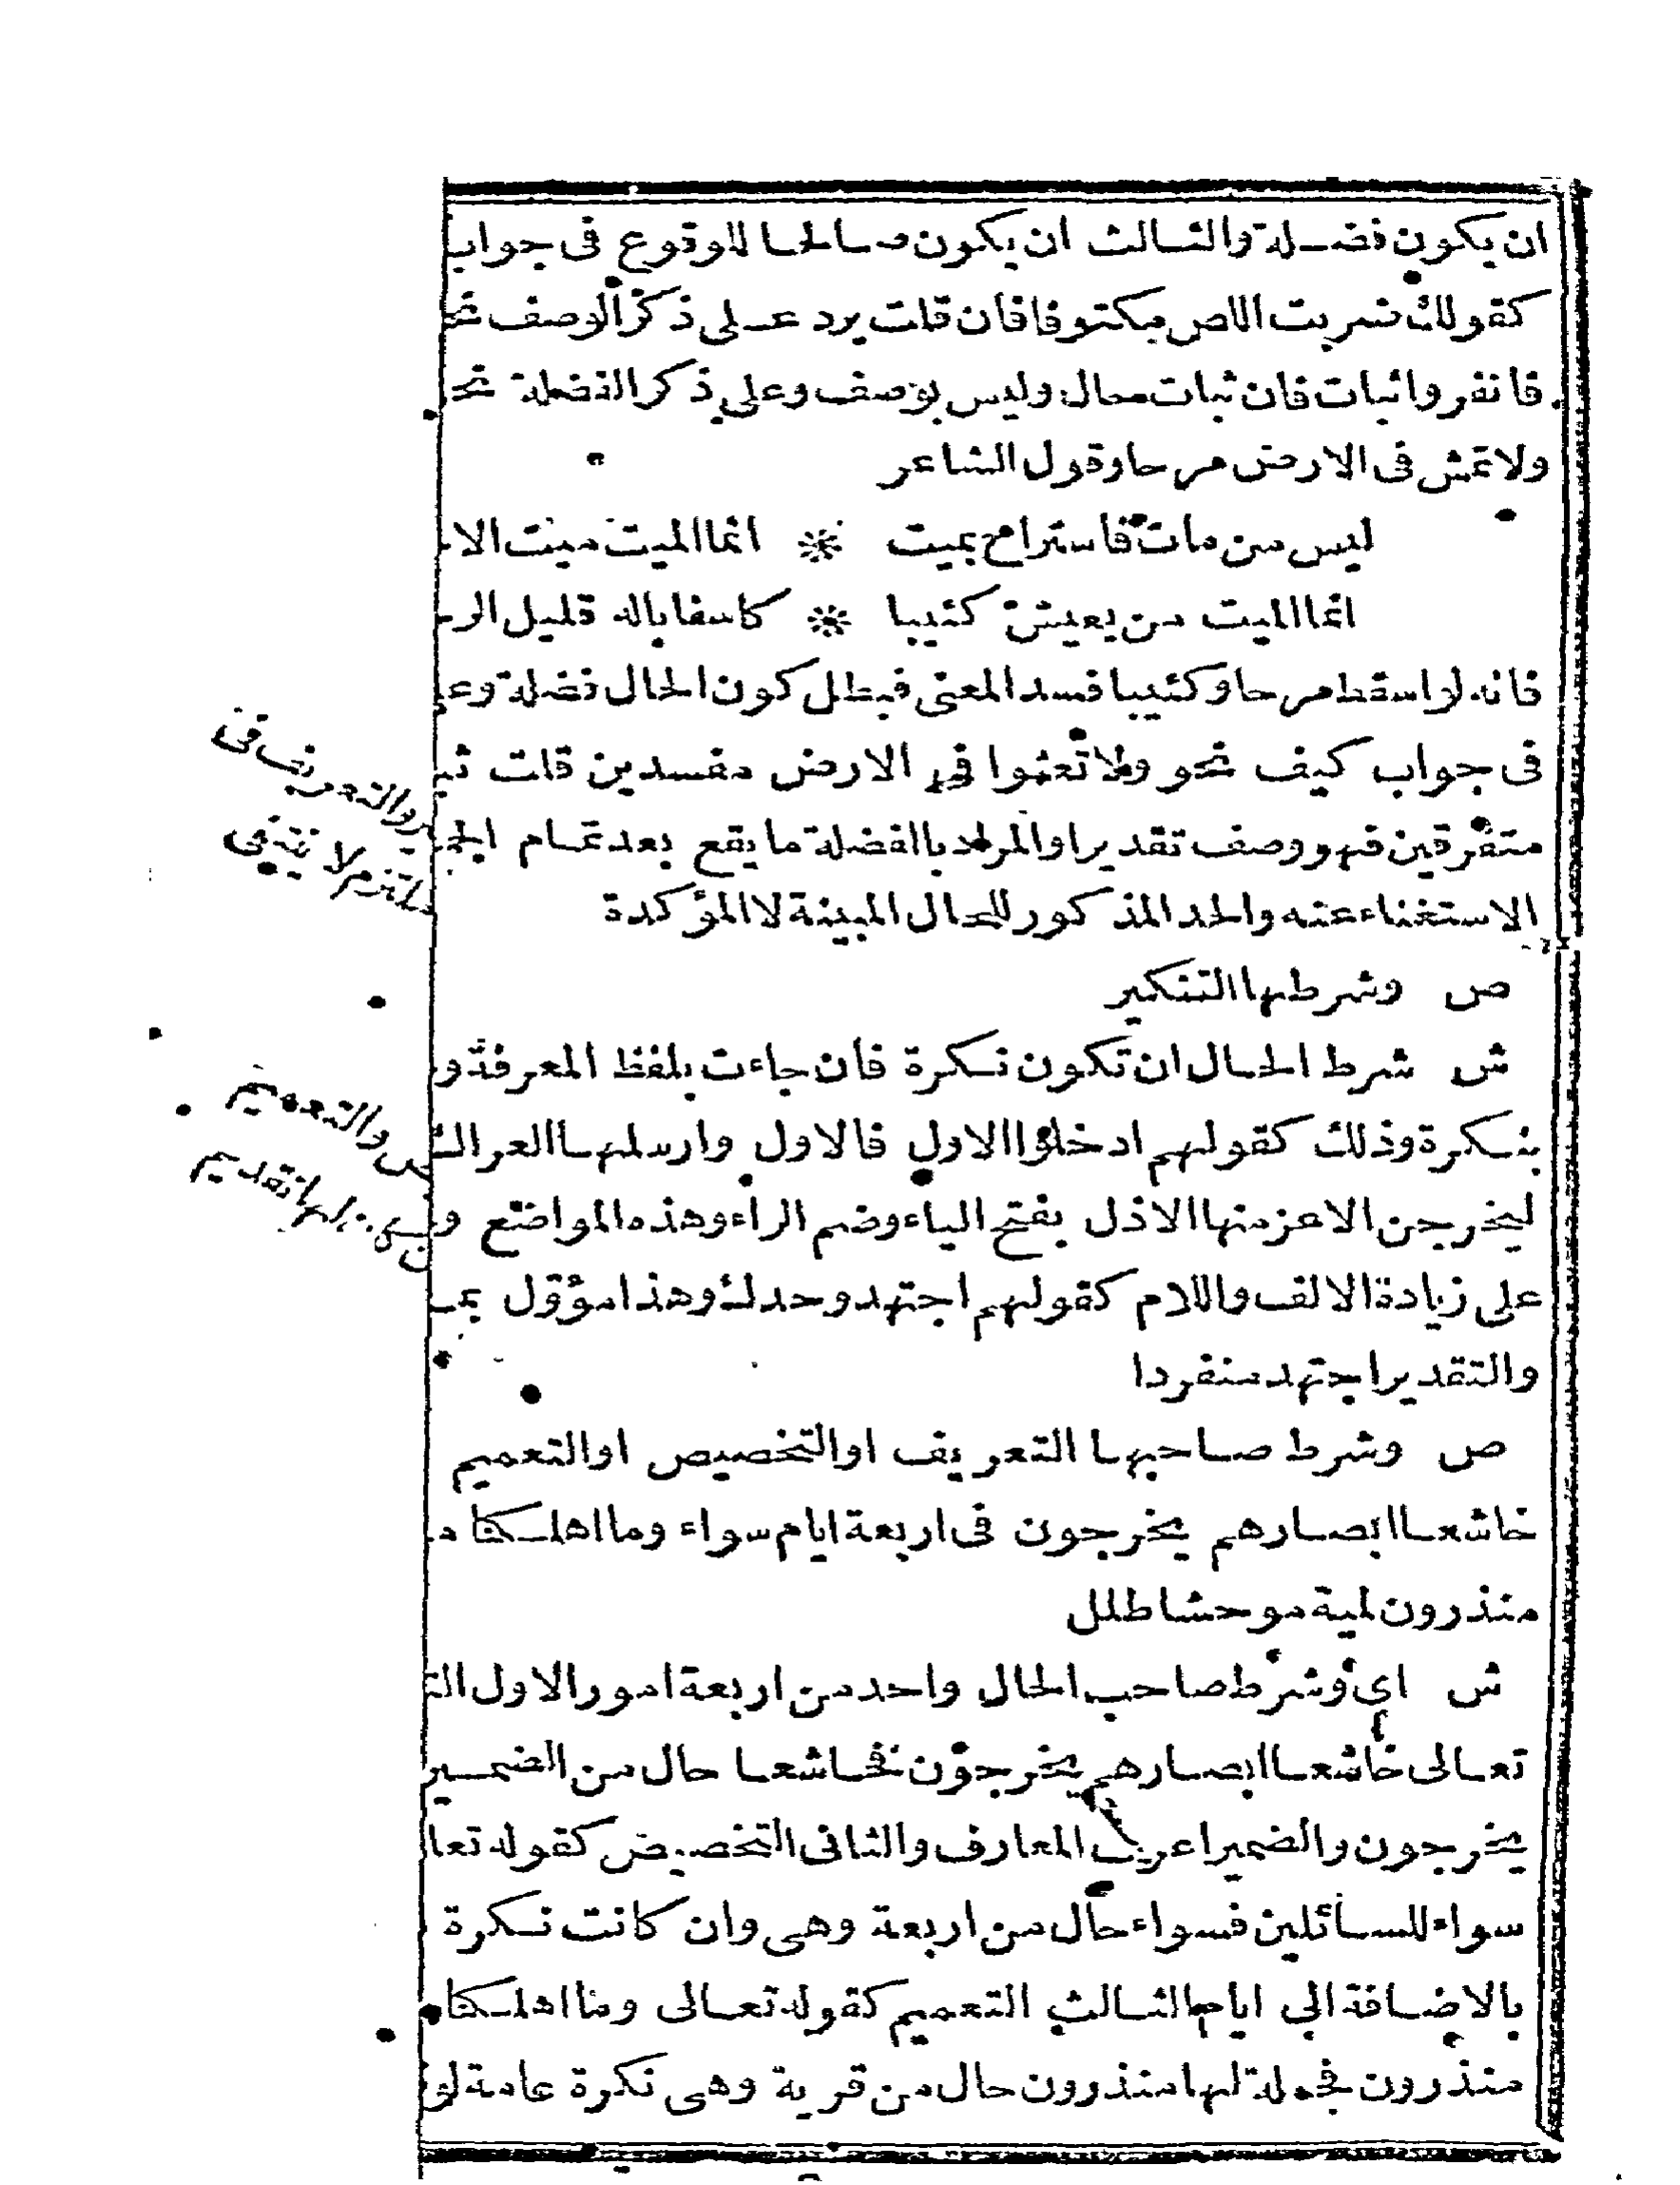 ان يكون فضـلة والثـالث ان يكون صـالحـا للوقوع فى جواب
كقولك ضربت اللص مكتوفا فان قلت يرد عـلى ذكر الوصف نحـ
فانفروا ثبات فان ثبات حال وليس بوصف وعلى ذكر الفضلة نحـ
ولا تمش فى الارض مرحا وقول الشاعر
ليس من مات فاستراح بميت * انما الميت ميت الا
انما الميت من يعيش كئيبا * كاسفا باله قليل الر
فانه لو اسقط مرحا وكئيبا فسد المعنى فبطل كون الحال فضلة وعـ
فى جواب كيف نحو ولا تعثوا فى الارض مفسدين قلت ثبـ
متفرقين فهو وصف تقديرا والمراد بالفضلة ما يقع بعد تمـام الجمـ
الاستغناء عنه والحد المذكور للحال المبينة لا المؤكدة
ص وشرطها التنكير
ش شرط الحـال ان تكون نـكرة فان جاءت بلفظ المعرفة و
بنـكرة وذلك كقولهم ادخلوا الاول فالاول وارسلهـا العراك
ليخرجن الاعز منها الاذل بفتح الياء وضم الراء وهذه المواضع و
على زيادة الالف واللام كقولهم اجتهد وحدك وهذا مؤول بمـ
والتقدير اجتهد منفردا
ص وشرط صـاحبهـا التعريف او التخصيص او التعميم
خاشعـا ابصـارهم يخرجون فى اربعة ايام سواء وما اهلـكنا مـ
منذرون لمية موحشا طلل
ش اى وشرط صاحب الحال واحد من اربعة امور الاول التـ
تعـالى خاشعـا ابصـارهم يخرجون فخـاشعـا حال من الضمـير
يخرجون والضمير اعرف المعارف والثانى التخصيص كقوله تعا
سواء للسـائلين فسواء حال من اربعة وهى وان كانت نـكرة
بالاضـافة الى ايام الثـالث التعميم كقوله تعـالى وما اهلـكنا
منذرون فجملة لها منذرون حال من قرية وهى نكرة عامة لو
والتعريف فى
ملتزم لا ينتفى
والتعميم
تقديم